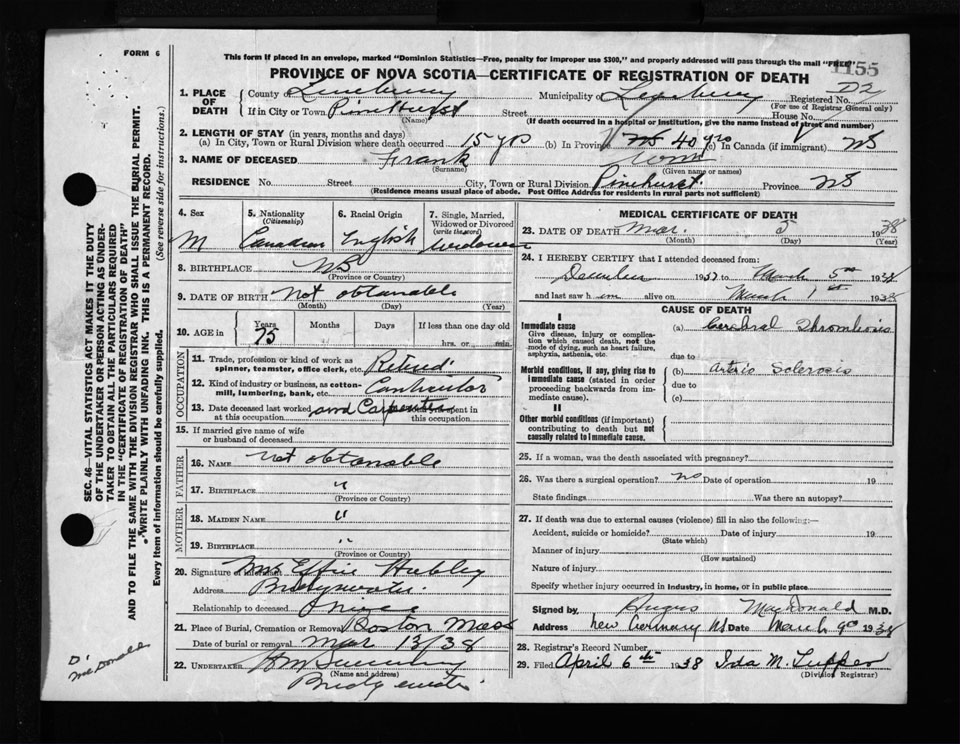 FORM 6
This form if placed in an envelope, marked "Dominion Statistics—Free, penalty for improper use $300," and properly addressed will pass through the mail "FREE"
1155
PROVINCE OF NOVA SCOTIA—CERTIFICATE OF REGISTRATION OF DEATH
D2
1. PLACE OF DEATH
County of Lunenburg Municipality of Lunenburg Registered No.
(For use of Registrar General only)
If in City or Town Pinehurst Street House No.
(Name) (If death occurred in a hospital or institution, give the name instead of street and number)
2. LENGTH OF STAY (in years, months and days)
(a) In City, Town or Rural Division where death occurred 15 yrs (b) In Province NS 40 yrs (c) In Canada (if immigrant) NS
3. NAME OF DECEASED Frank
(Surname) (Given name or names)
RESIDENCE No. Street City, Town or Rural Division Pinehurst Province NS
(Residence means usual place of abode. Post Office Address for residents in rural parts not sufficient)
4. Sex M
5. Nationality (Citizenship) Canadian
6. Racial Origin English
7. Single, Married, Widowed or Divorced (write the word) Widower
8. BIRTHPLACE
(Province or Country)
9. DATE OF BIRTH not obtanable
(Month) (Day) (Year)
10. AGE in Years Months Days If less than one day old
75 hrs. or min.
OCCUPATION
11. Trade, profession or kind of work as spinner, teamster, office clerk, etc. Retired
12. Kind of industry or business, as cotton-mill, lumbering, bank, etc. Contractor
13. Date deceased last worked at this occupation and Carpenter spent in this occupation
15. If married give name of wife or husband of deceased
FATHER
16. NAME not obtanable
17. BIRTHPLACE "
(Province or Country)
MOTHER
18. MAIDEN NAME "
19. BIRTHPLACE "
(Province or Country)
20. Signature of Informant Mrs Effie Hubley
Address Bridgewater
Relationship to deceased niece
21. Place of Burial, Cremation or Removal Boston Mass
Date of burial or removal Mar 13/38
22. UNDERTAKER
(Name and address)
Bridgewater
MEDICAL CERTIFICATE OF DEATH
23. DATE OF DEATH Mar. 5 1938
(Month) (Day) (Year)
24. I HEREBY CERTIFY that I attended deceased from:
December 1937 to March 5th 1938
and last saw him alive on March 1st 1938
CAUSE OF DEATH
I
Immediate cause
Give disease, injury or complication which caused death, not the mode of dying, such as heart failure, asphyxia, asthenia, etc.
(a) Cerebral Thrombosis
due to
Morbid conditions, if any, giving rise to immediate cause (stated in order proceeding backwards from immediate cause).
(b) Arterio Sclerosis
due to
(c)
II
Other morbid conditions (if important) contributing to death but not causally related to immediate cause.
25. If a woman, was the death associated with pregnancy?
26. Was there a surgical operation? no Date of operation 19
State findings Was there an autopsy?
27. If death was due to external causes (violence) fill in also the following:—
Accident, suicide or homicide? Date of injury 19
(State which)
Manner of injury
(How sustained)
Nature of injury
Specify whether injury occurred in industry, in home, or in public place
Signed by Angus MacDonald M.D.
Address New Germany NS Date March 9th 1938
28. Registrar's Record Number
29. Filed April 6th 1938 Ida M. Tupper
(Division Registrar)
SEC. 46—VITAL STATISTICS ACT MAKES IT THE DUTY
OF THE UNDERTAKER OR PERSON ACTING AS UNDER-
TAKER TO OBTAIN ALL THE PARTICULARS REQUIRED
IN THE "CERTIFICATE OF REGISTRATION OF DEATH"
AND TO FILE THE SAME WITH THE DIVISION REGISTRAR WHO SHALL ISSUE THE BURIAL PERMIT.
WRITE PLAINLY WITH UNFADING INK. THIS IS A PERMANENT RECORD.
Every item of information should be carefully supplied. (See reverse side for instructions.)
Dr
MacDonald